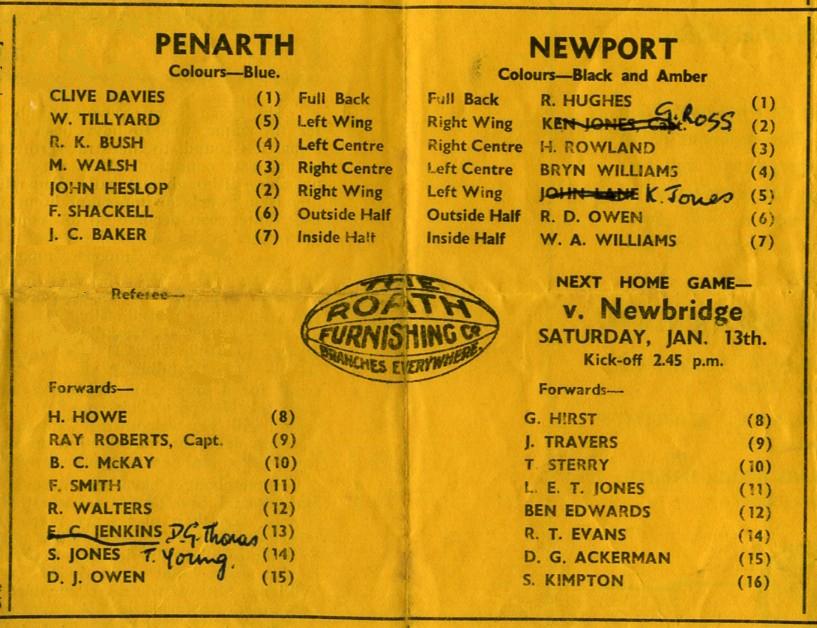 PENARTH
Colours—Blue.
CLIVE DAVIES (1) Full Back
W. TILLYARD (5) Left Wing
R. K. BUSH (4) Left Centre
M. WALSH (3) Right Centre
JOHN HESLOP (2) Right Wing
F. SHACKELL (6) Outside Half
J. C. BAKER (7) Inside Half
Referee—
Forwards—
H. HOWE (8)
RAY ROBERTS, Capt. (9)
B. C. McKAY (10)
F. SMITH (11)
R. WALTERS (12)
E. C. JENKINS D.G. Thomas (13)
S. JONES T. Young. (14)
D. J. OWEN (15)
THE
ROATH
FURNISHING CO
BRANCHES EVERYWHERE.
NEWPORT
Colours—Black and Amber
Full Back R. HUGHES (1)
Right Wing KEN JONES, Capt. G. Ross (2)
Right Centre H. ROWLAND (3)
Left Centre BRYN WILLIAMS (4)
Left Wing JOHN LANE K. Jones (5)
Outside Half R. D. OWEN (6)
Inside Half W. A. WILLIAMS (7)
NEXT HOME GAME—
v. Newbridge
SATURDAY, JAN. 13th.
Kick-off 2.45 p.m.
Forwards—
G. HIRST (8)
J. TRAVERS (9)
T. STERRY (10)
L. E. T. JONES (11)
BEN EDWARDS (12)
R. T. EVANS (14)
D. G. ACKERMAN (15)
S. KIMPTON (16)